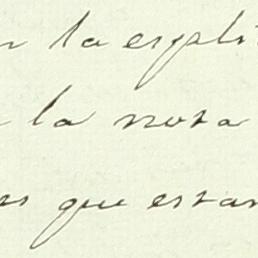 la espli
la nota
que estan